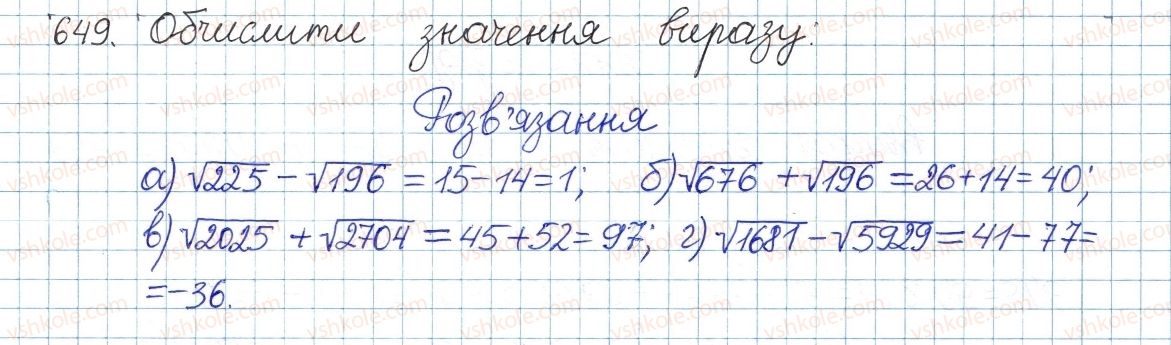 649. Обчислити значення виразу:
Розв'язання
а) √225 − √196 = 15 − 14 = 1; б) √676 + √196 = 26 + 14 = 40;
в) √2025 + √2704 = 45 + 52 = 97; г) √1681 − √5929 = 41 − 77 =
= −36.